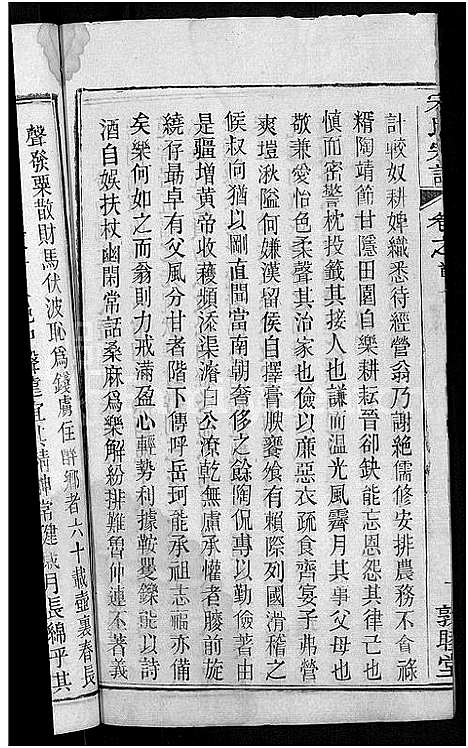 宋氏宗譜
卷之首
敦睦堂
計較奴耕婢織悉待經營翁乃謝絕儒修安排農務不會祿
糈陶靖節甘隱田園自樂耕耘晉卻缺能忘恩怨其律己也
慎而密警枕投籤其接人也謙而温光風霽月其事父母也
敬兼愛怡色柔聲其治家也儉以廉惡衣疏食齊宴子弗營
爽塏湫隘何嫌漢留侯自擇膏腴饔飧有賴際列國滑稽之
候叔向猶以剛直聞當南朝奢侈之餘陶侃專以勤儉著由
是疆增黃帝收穫頻添渠濬白公潦乾無慮承懽者膝前旋
繞仔最卓有父風分甘者階下傳呼岳珂能承祖志福亦備
矣樂何如之而翁則力戒滿盈心輕勢利據鞍矍鑠能以詩
酒自娛扶杖幽閑常話桑麻爲樂解紛排難魯仲連不著義
聲發粟散財馬伏波恥爲錢虜住群鄉者六十載壺裏春長
精神常健歲月長綿乎其